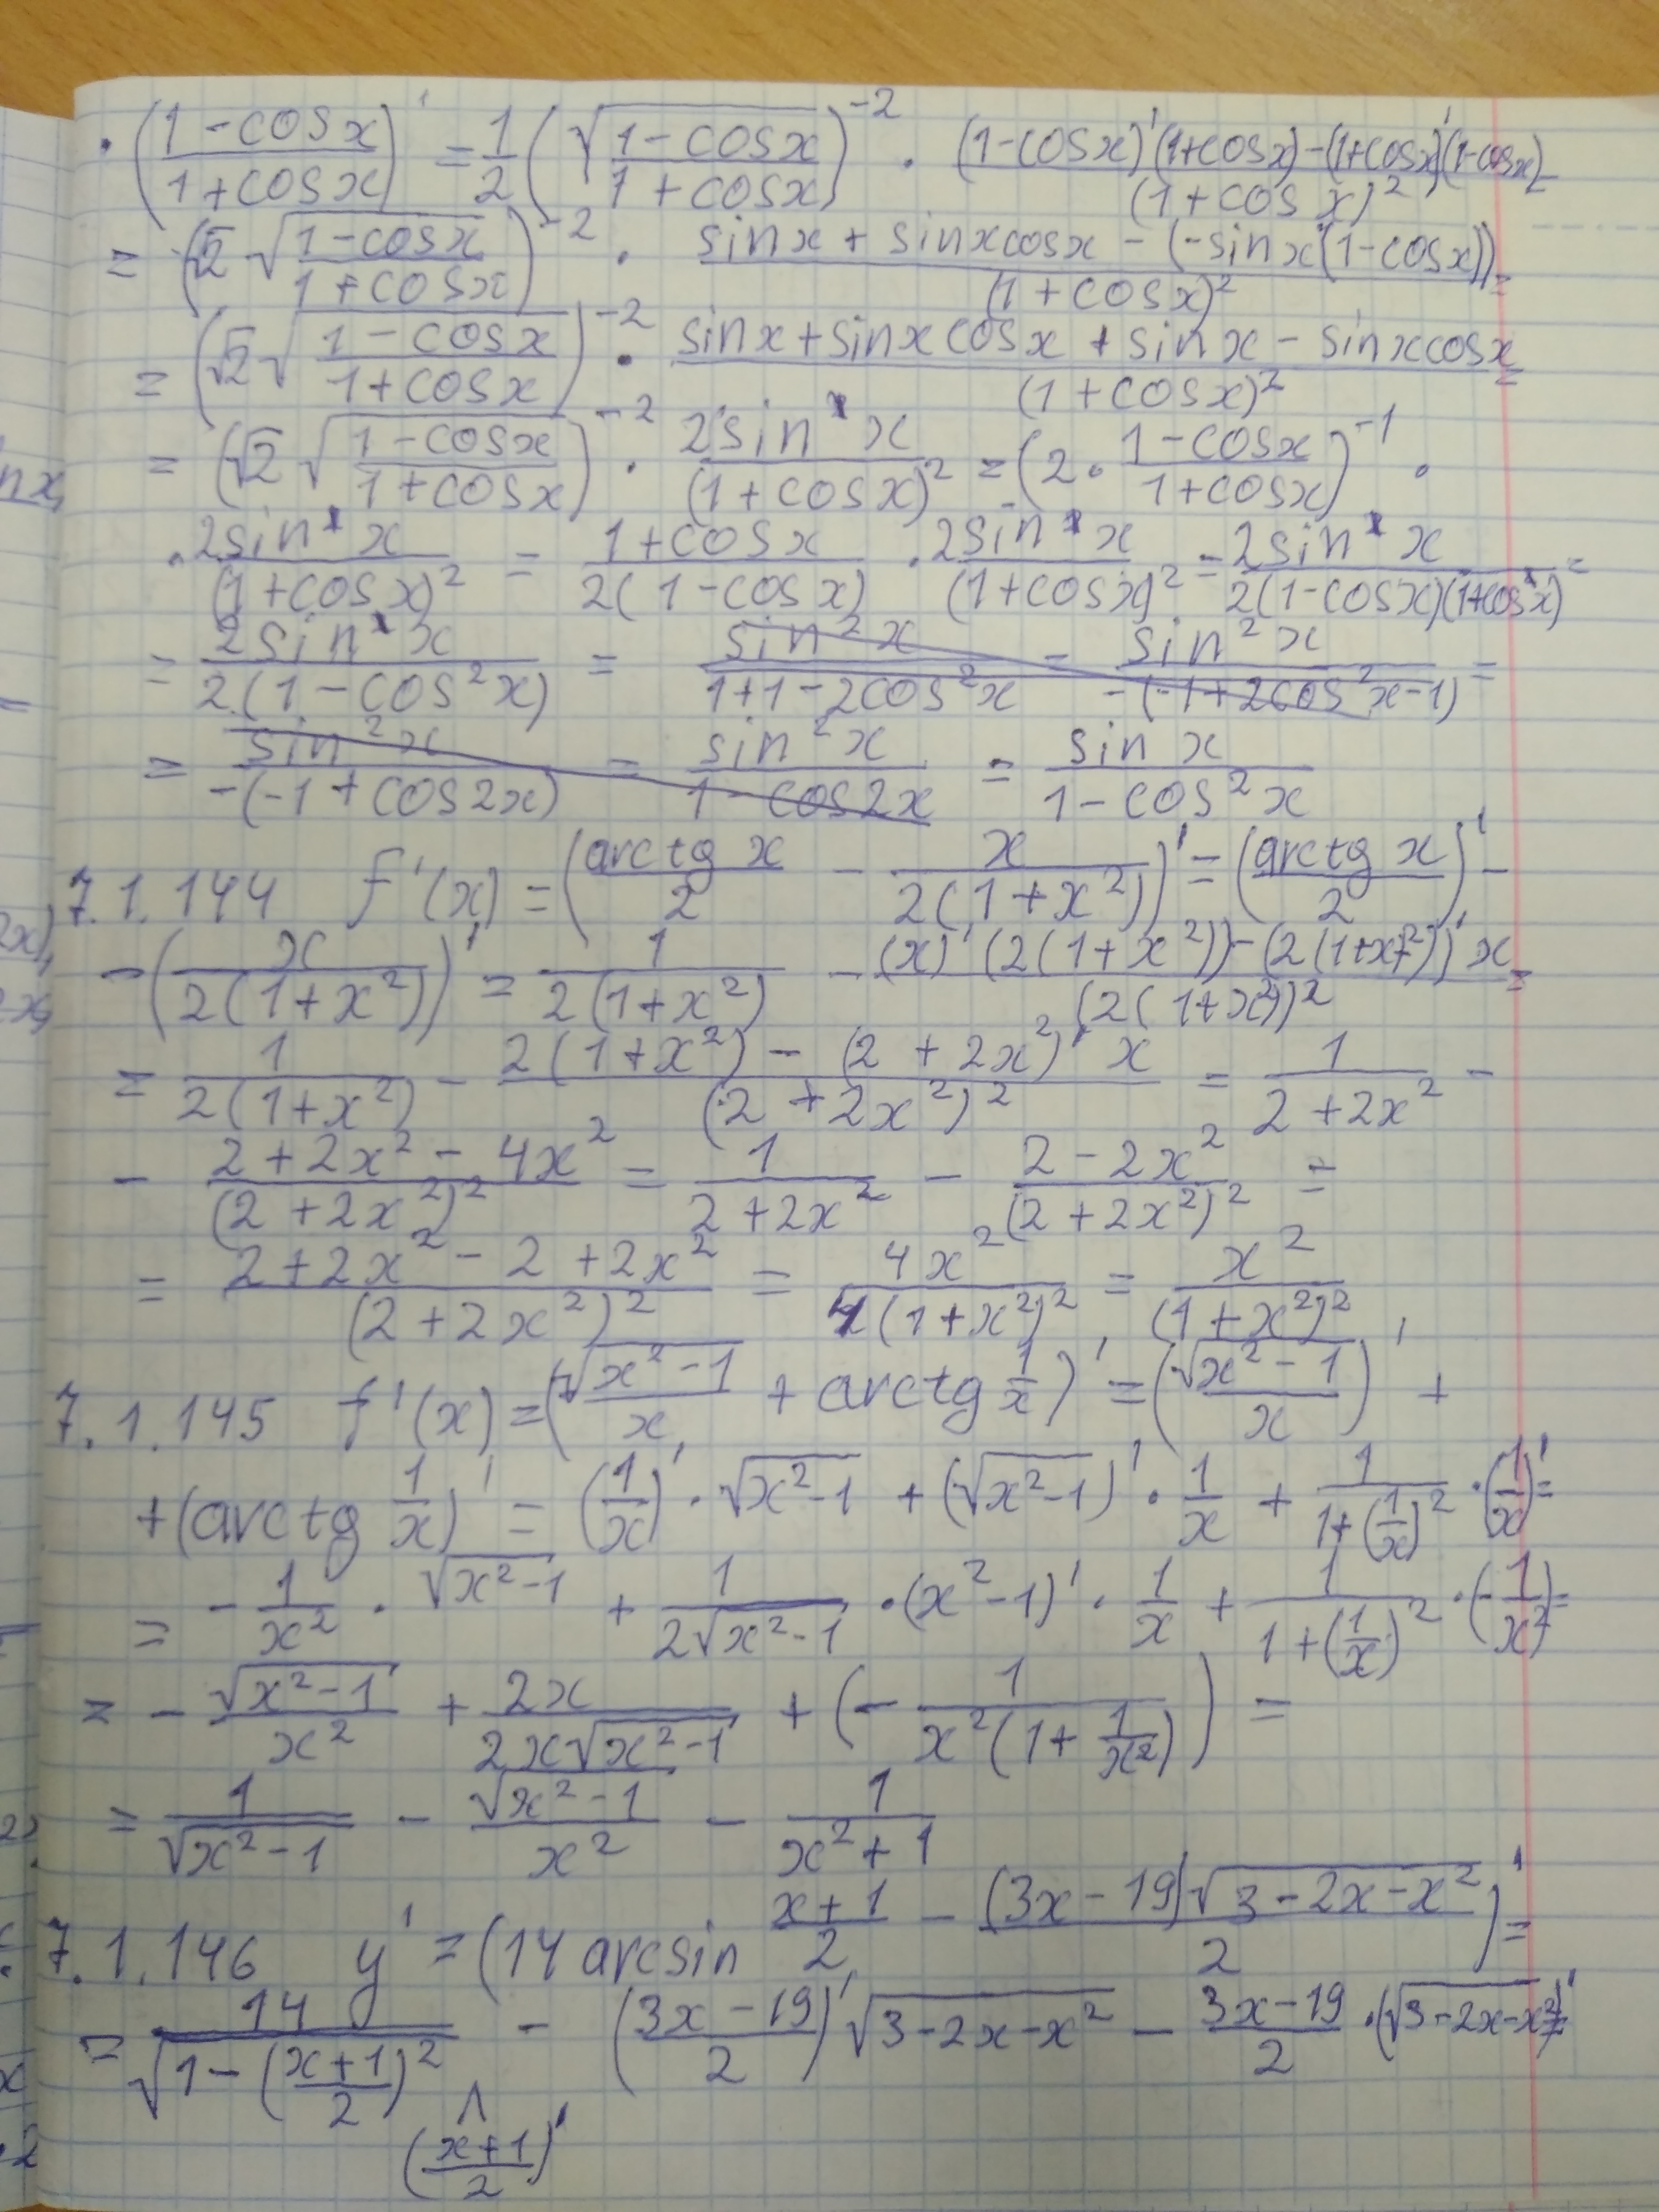 · ((1-cos x)/(1+cos x))' = 1/2 (√((1-cos x)/(1+cos x)))^-2 · ((1-cos x)'(1+cos x)-(1+cos x)'(1-cos x))/(1+cos x)^2
= (√2 √((1-cos x)/(1+cos x)))^-2 · (sin x + sin x cos x - (-sin x (1-cos x)))/(1+cos x)^2 =
= (√2 √((1-cos x)/(1+cos x)))^-2 · (sin x + sin x cos x + sin x - sin x cos x)/(1+cos x)^2 =
= (√2 √((1-cos x)/(1+cos x)))^-2 · (2 sin x)/(1+cos x)^2 = (2 · (1-cos x)/(1+cos x))^-1 ·
· (2 sin x)/(1+cos x)^2 = (1+cos x)/(2(1-cos x)) · (2 sin x)/(1+cos x)^2 = (2 sin x)/(2(1-cos x)(1+cos x)) =
= (2 sin x)/(2(1-cos^2 x)) = (sin^2 x)/(1+1-2cos^2 x) = (sin^2 x)/(-(-1+2cos^2 x-1)) =
= (sin^2 x)/(-(-1+cos 2x)) = (sin^2 x)/(1-cos 2x) = (sin x)/(1-cos^2 x)
7.1.144 f'(x) = ((arctg x)/2 - x/(2(1+x^2)))' = ((arctg x)/2)' -
- (x/(2(1+x^2)))' = 1/(2(1+x^2)) - ((x)'(2(1+x^2))-(2(1+x^2))'x)/(2(1+x^2))^2 =
= 1/(2(1+x^2)) - (2(1+x^2) - (2+2x^2)' x)/(2+2x^2)^2 = 1/(2+2x^2) -
- (2+2x^2-4x^2)/(2+2x^2)^2 = 1/(2+2x^2) - (2-2x^2)/(2+2x^2)^2 =
= (2+2x^2-2+2x^2)/(2+2x^2)^2 = 4x^2/(4(1+x^2)^2) = x^2/(1+x^2)^2
7.1.145 f'(x) = (√(x^2-1)/x + arctg 1/x)' = (√(x^2-1)/x)' +
+ (arctg 1/x)' = (1/x)' · √(x^2-1) + (√(x^2-1))' · 1/x + 1/(1+(1/x)^2) · (1/x)' =
= - 1/x^2 · √(x^2-1) + 1/(2√(x^2-1)) · (x^2-1)' · 1/x + 1/(1+(1/x)^2) · (-1/x^2) =
= - √(x^2-1)/x^2 + 2x/(2x√(x^2-1)) + (- 1/(x^2(1+1/x^2))) =
= 1/√(x^2-1) - √(x^2-1)/x^2 - 1/(x^2+1)
7.1.146 y' = (14 arcsin (x+1)/2 - ((3x-19)√(3-2x-x^2))/2)' =
= 14/√(1-((x+1)/2)^2) - ((3x-19)/2)' √(3-2x-x^2) - (3x-19)/2 · (√(3-2x-x^2))' =
((x+1)/2)'